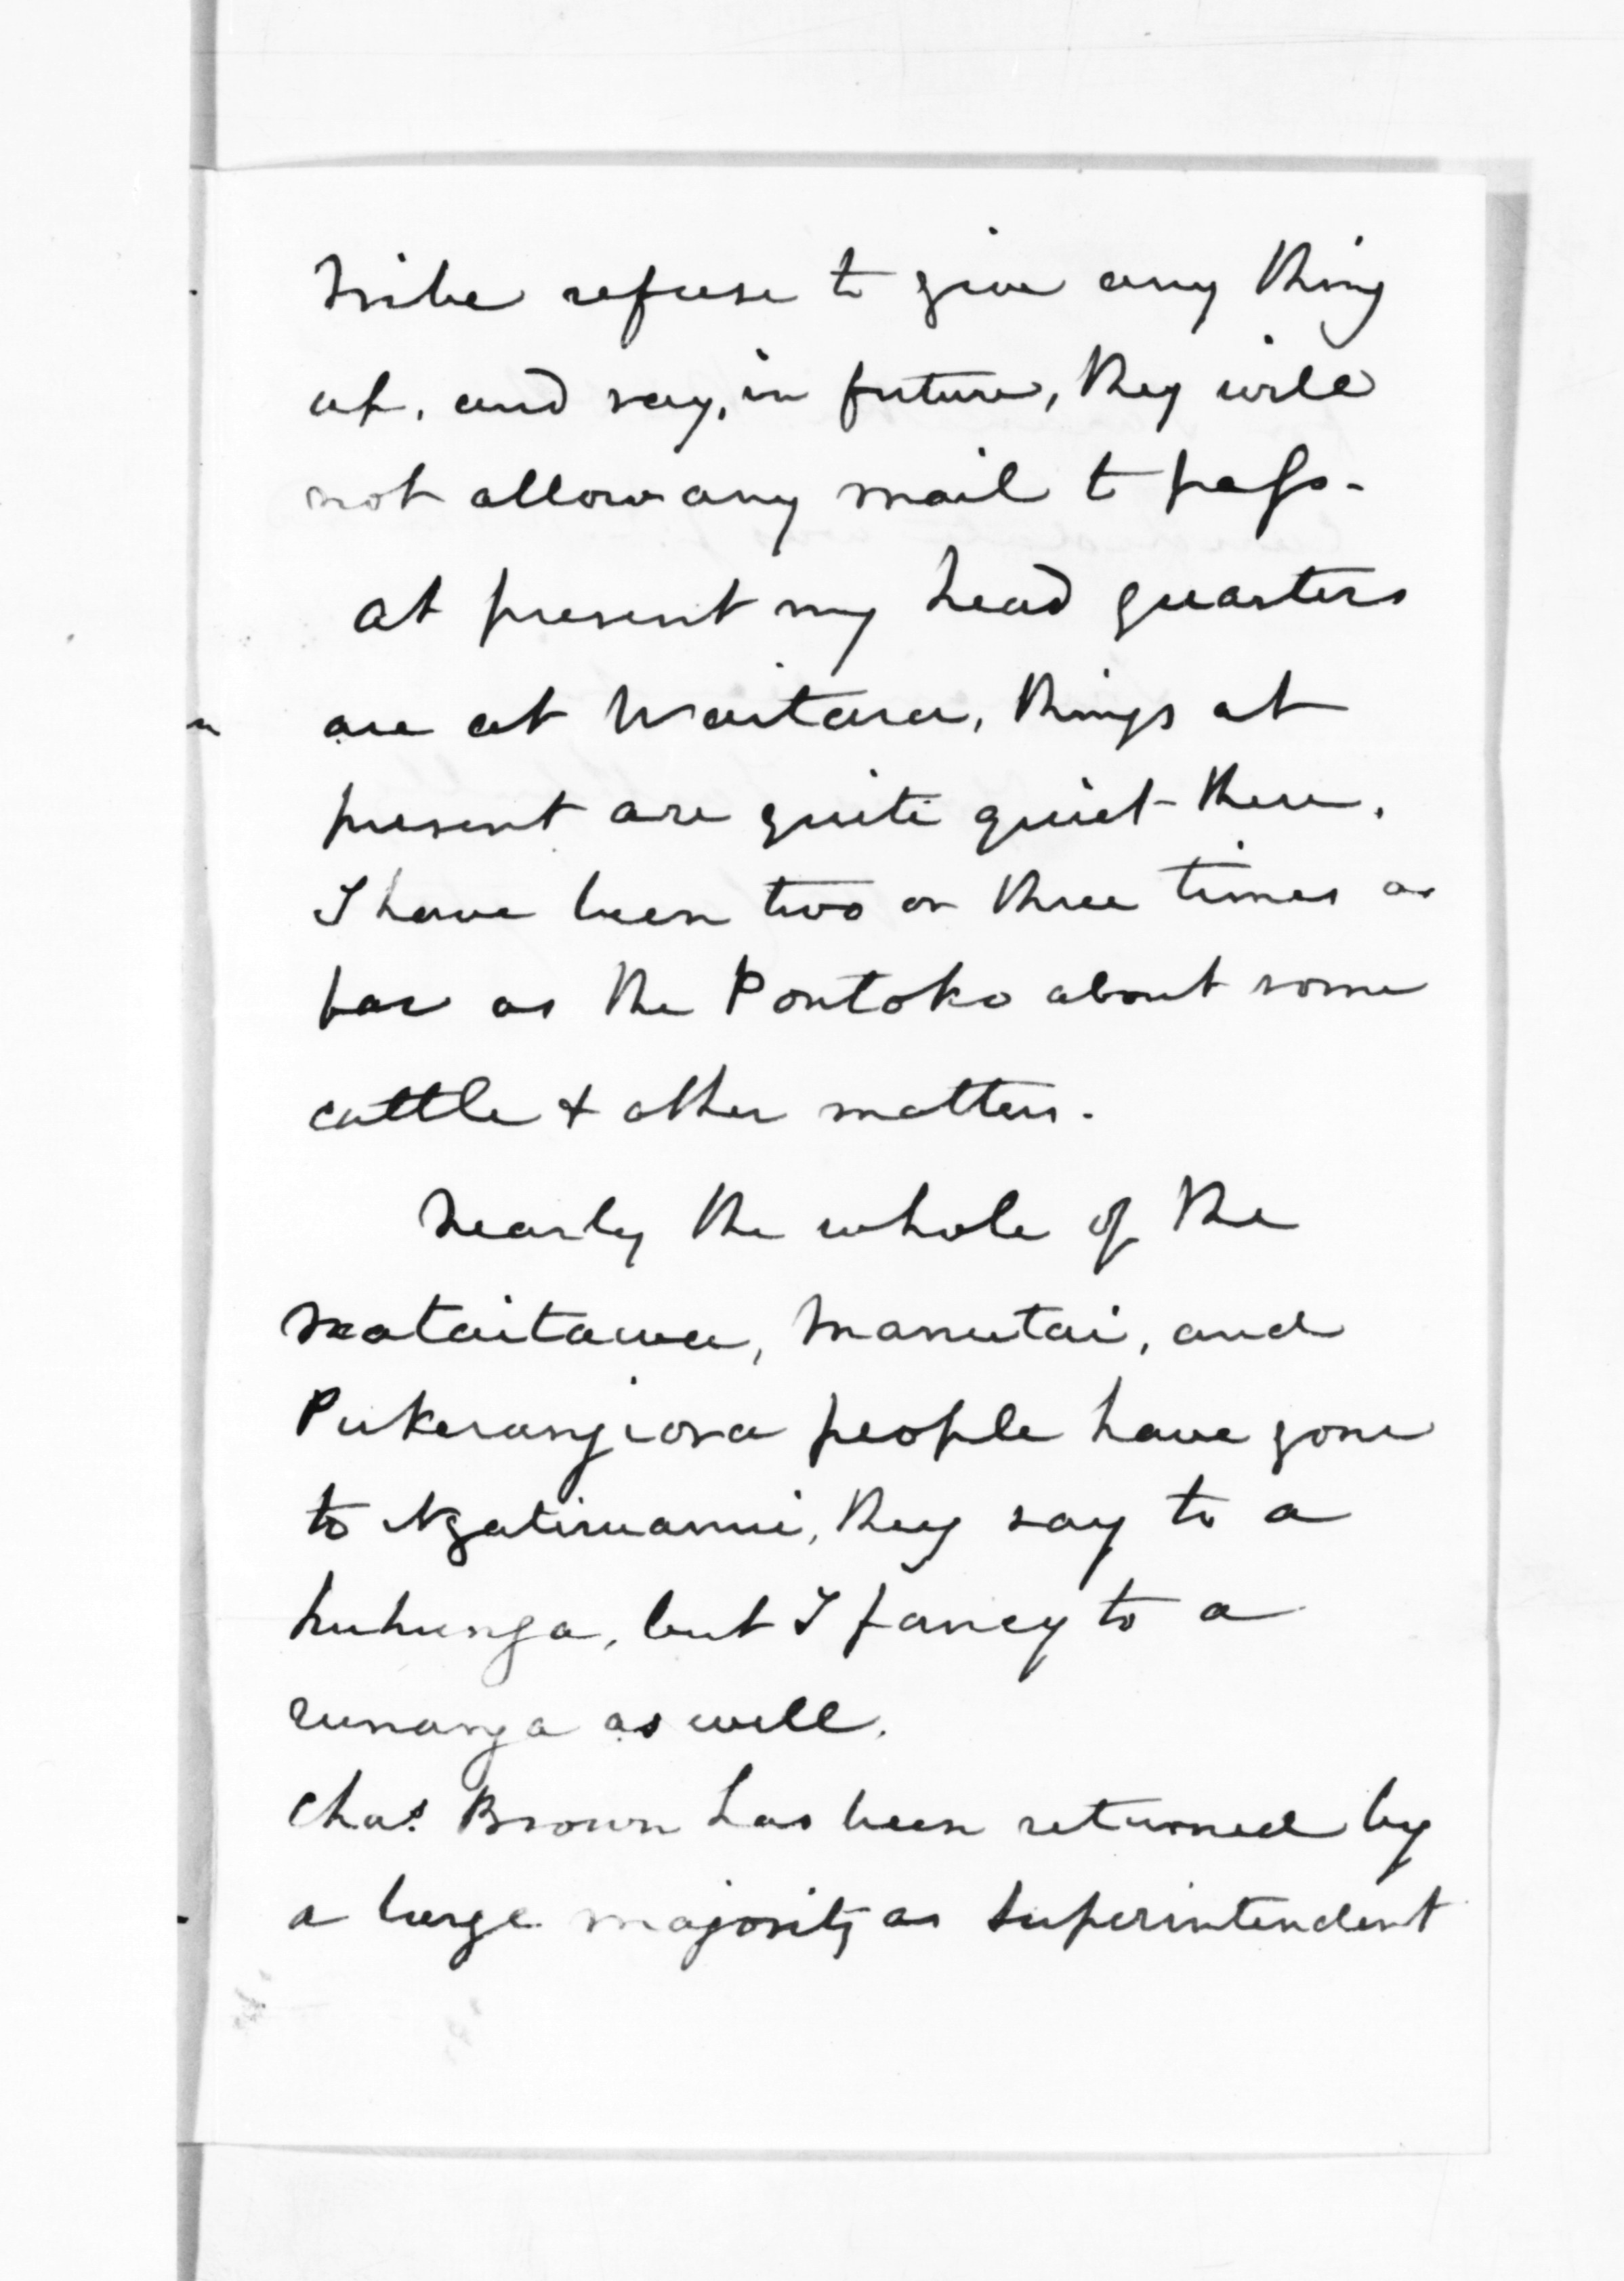 tribe refuse to give any thing
up, and say, in future, they will
not allow any mail to pass -
at present my head quarters
are at Waitara, things at
present are quite quiet there.
I have been two or three times as
far as the Poutoko about some
cattle & other matters.
Nearly the whole of the
Mataitawa, Manutai, and
Pukerangiora people have gone
to Ngatiruanui, they say to a
huhunga, but I fancy to a
runanga as well.
Chas. Brown has been returned by
a large majority as Superintendent